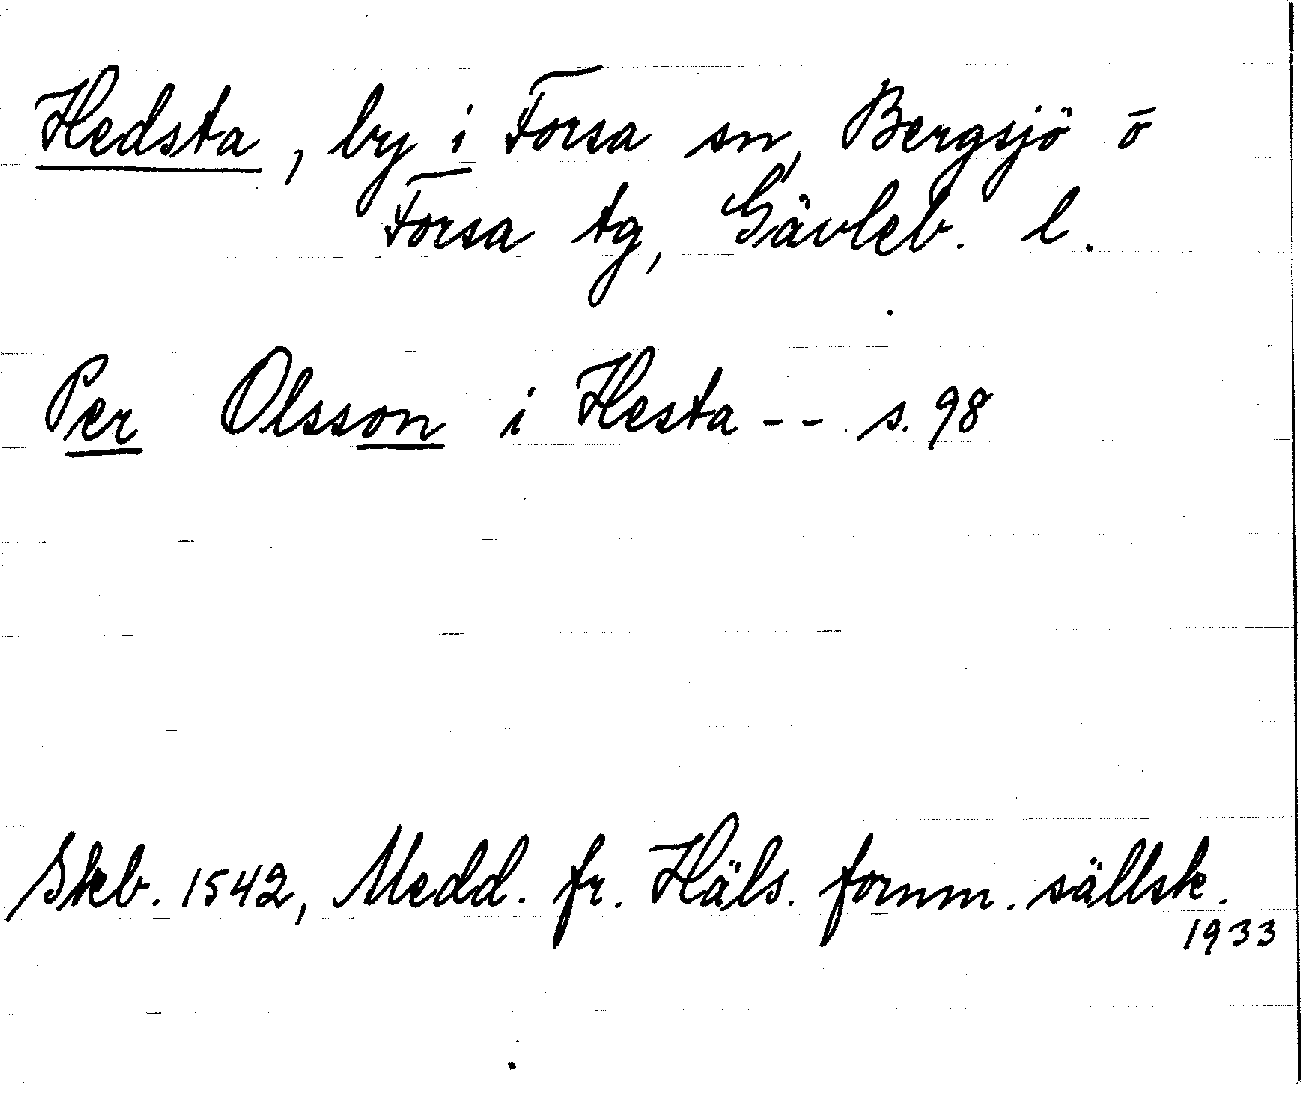 Hedsta, by i Forsa sn, Bergsjö o
Forsa tg, Gävleb. l.
Per Olsson i Hesta -- s. 98
Skb. 1542, Medd. fr. Häls. fornm. sällsk.
1933